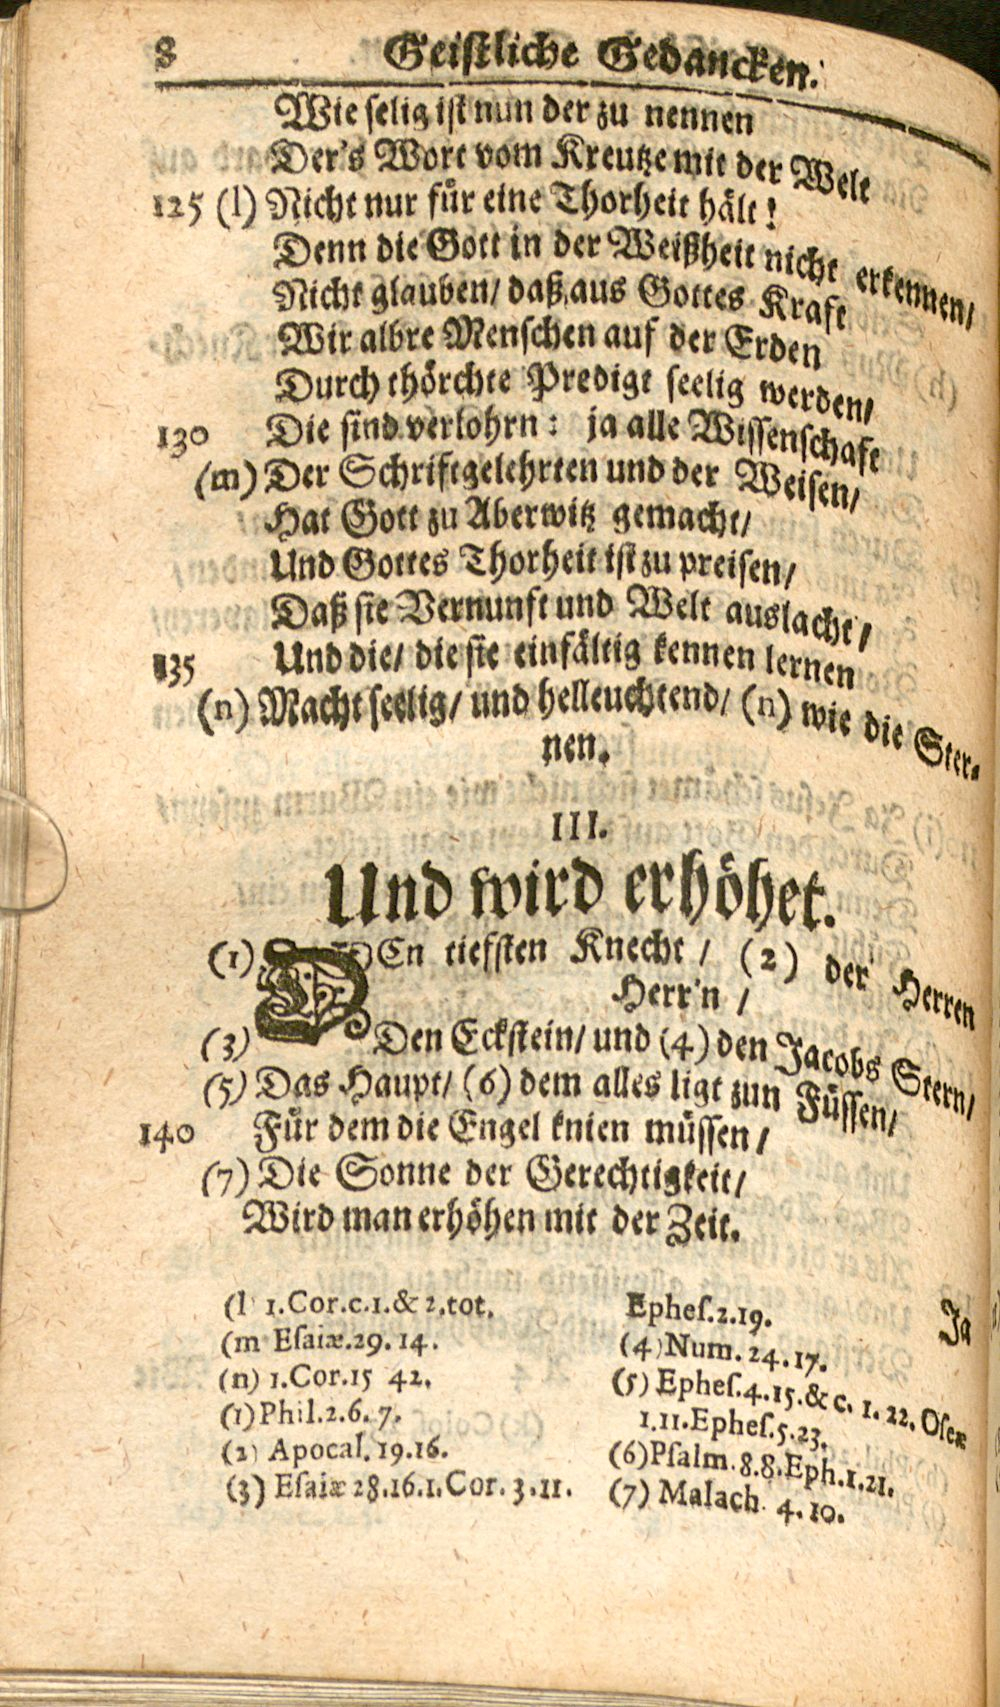 8 Geistliche Gedancken.
Wie selig ist nun der zu nennen
Der's Wort vom Kreutze mit der Welt
125 (l) Nicht nur für eine Thorheit hält!
Denn die Gott in der Weißheit nicht erkennen/
Nicht glauben/ daß aus Gottes Kraft
Wir albre Menschen auf der Erden
Durch thörchte Predigt seelig werden/
130 Die sind verlohrn: ja alle Wissenschaft
(m) Der Schriftgelehrten und der Weisen/
Hat Gott zu Aberwitz gemacht/
Und Gottes Thorheit ist zu preisen/
Daß sie Vernunft und Welt auslacht/
135 Und die/ die sie einfältig kennen lernen
(n) Macht seelig/ und helleuchtend/ (n) wie die Ster-
nen.
III.
Und wird erhöhet.
(1) DEn tiefsten Knecht / (2) der Herren
Herr'n /
(3) Den Eckstein/ und (4) den Jacobs Stern/
(5) Das Haupt/ (6) dem alles ligt zun Füssen/
140 Für dem die Engel knien müssen/
(7) Die Sonne der Gerechtigkeit/
Wird man erhöhen mit der Zeit.
Ja
(l) 1.Cor.c.1.& 2.tot.
(m Esaiæ.29.14.
(n) 1.Cor.15 42.
(1) Phil.2.6.7.
(2) Apocal.19.16.
(3) Esaiæ 28.16.1.Cor.3.11.
Ephes.2.19.
(4) Num.24.17.
(5) Ephes.4.15.& c.1.22.Oseæ
1.11.Ephes.5.23.
(6) Psalm.8.8.Eph.1.21.
(7) Malach 4.10.